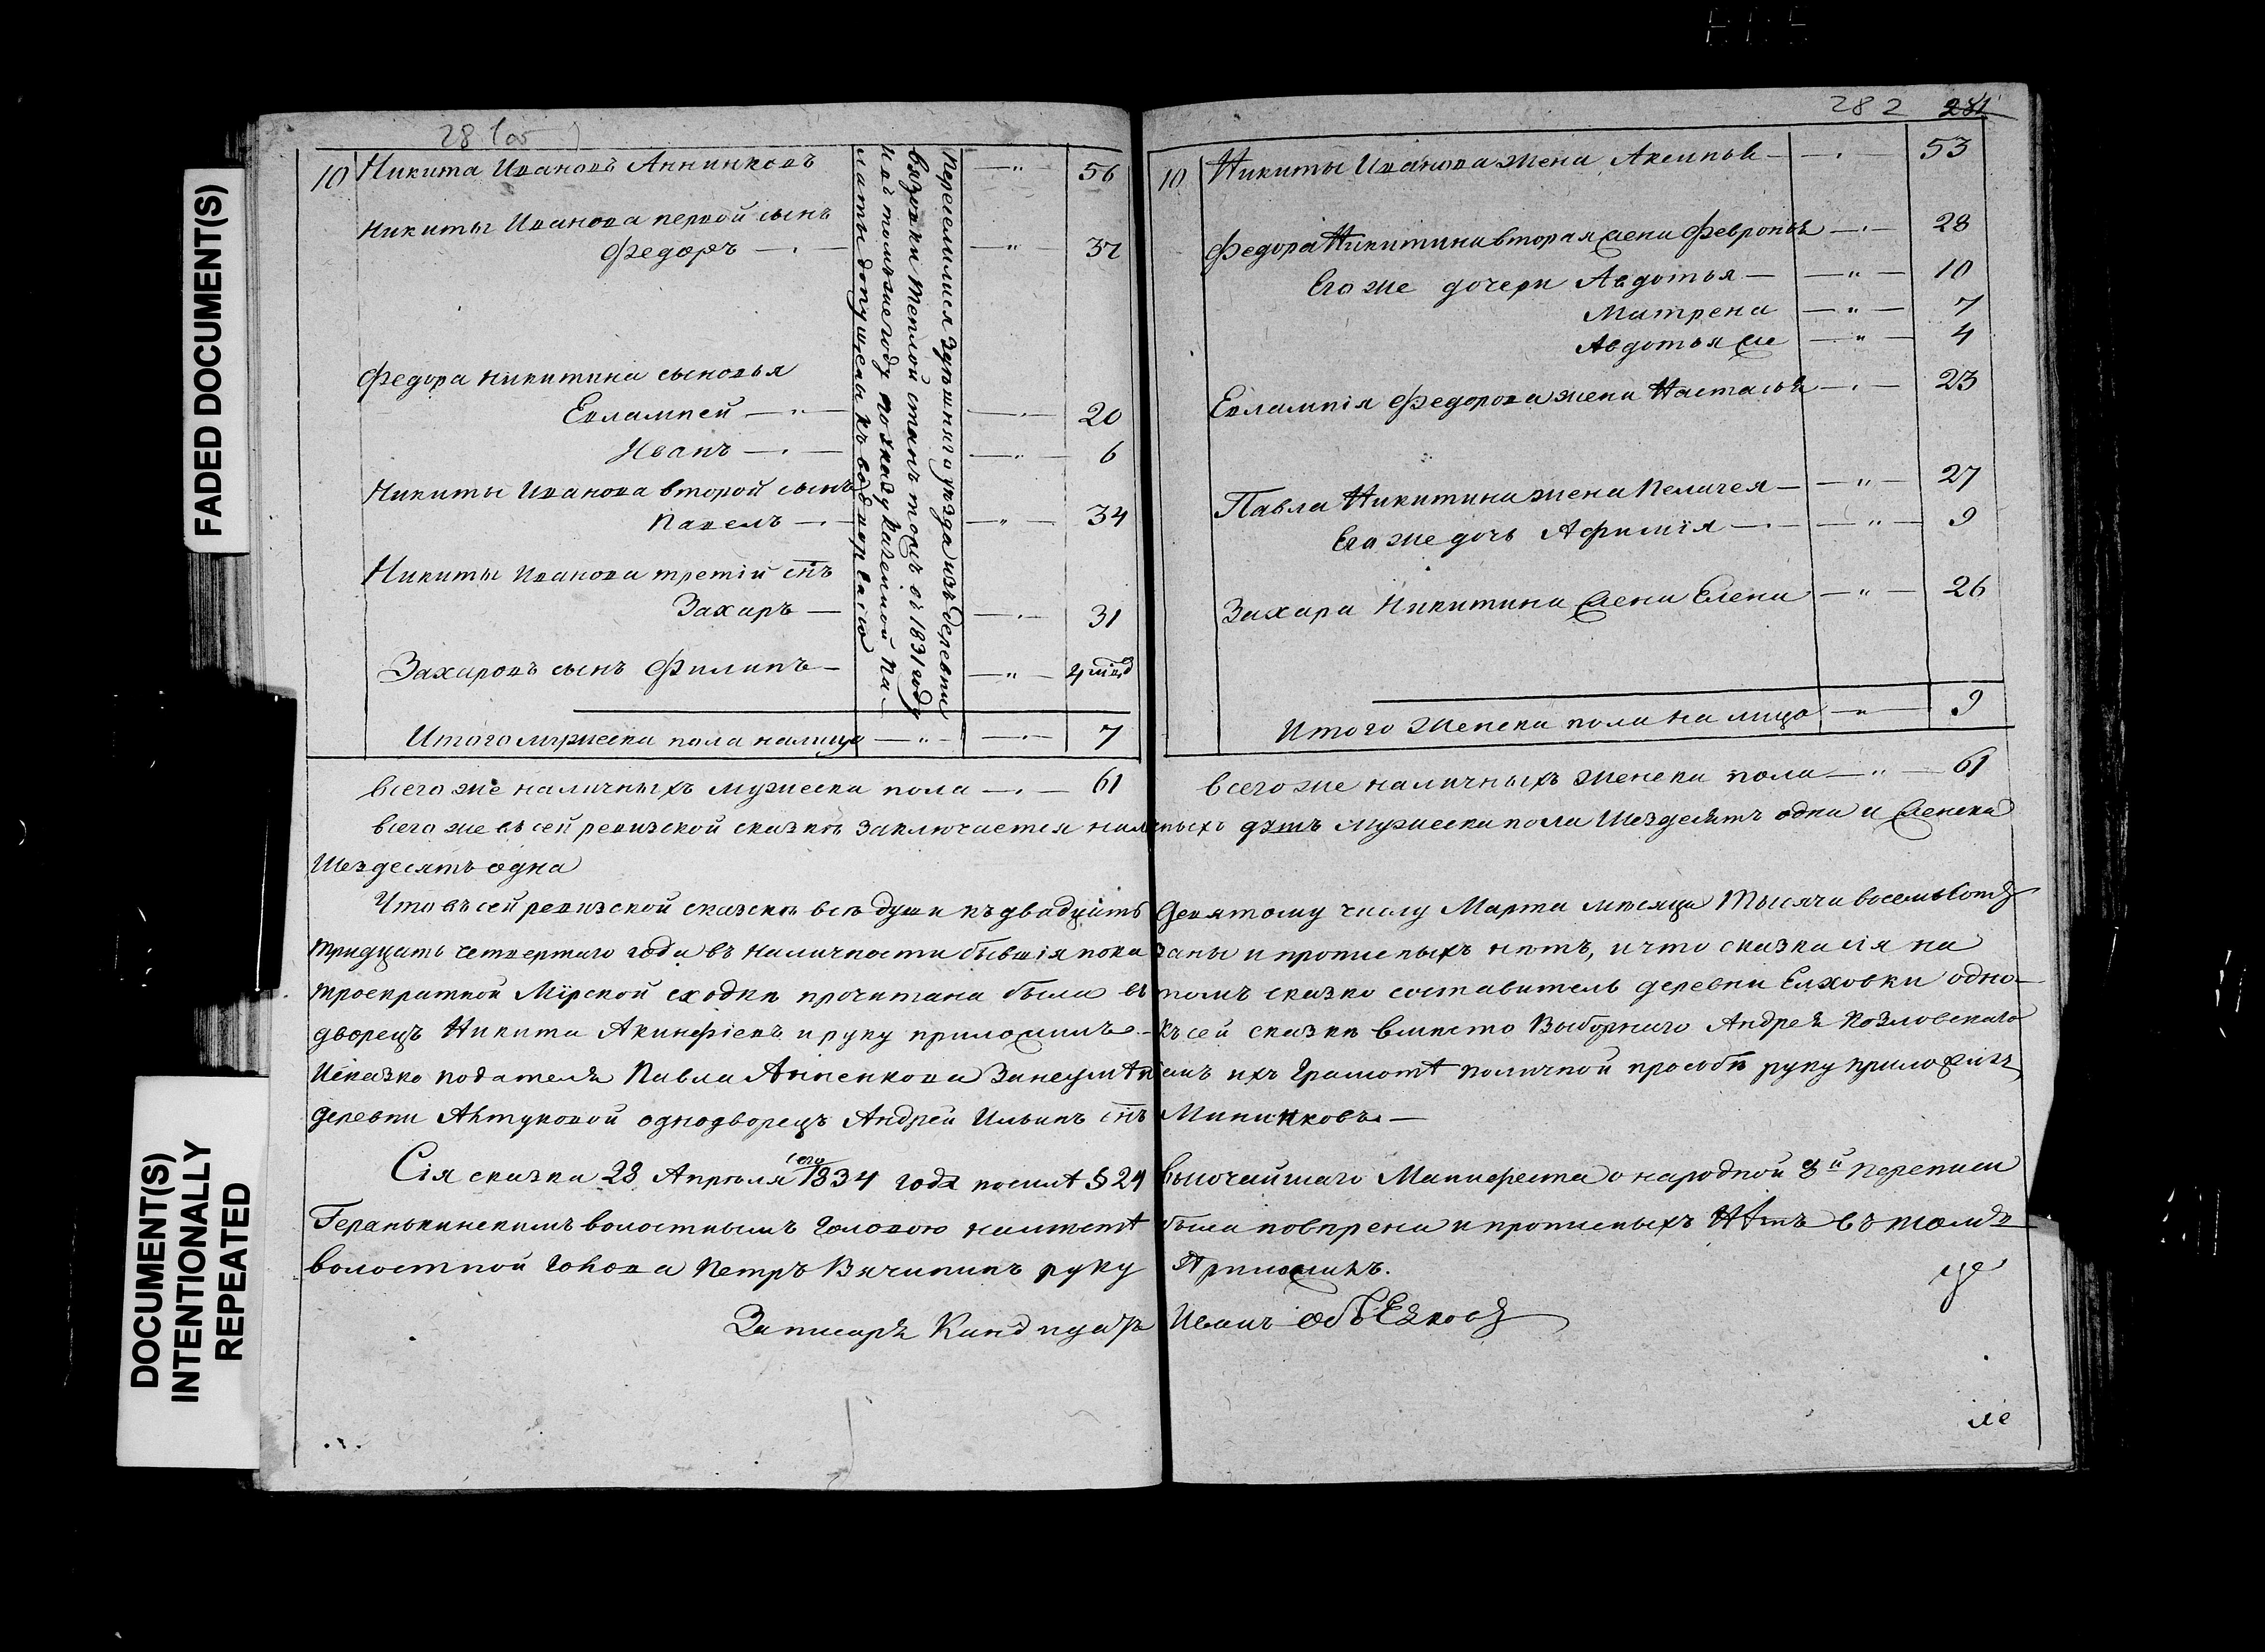 FADED DOCUMENT(S)
DOCUMENT(S)
INTENTIONALLY
REPEATED
281 об
10 Никита Ивановъ Аннинковъ — 56
Никиты Иванова первой сынъ
Федоръ — 37
Федора Никитина сыновья
Евлампей — 20
Иванъ — 6
Никиты Иванова второй сынъ
Павелъ — 34
Никиты Иванова третій снъ
Захаръ — 31
Захаровъ сынъ Филипъ — 4
Переселились уезда изъ деревни
Вязовки Теплой станъ тожъ въ 1831 году
по указу Казенной Па-
латы допущены къ
Итого мужеска пола налицо — 7
Всего же наличныхъ мужеска пола — 61
282 281
10 Никиты Иванова жена Аксинья — 53
Федора Никитина вторая жена Февронья — 28
Его же дочери Авдотья — 10
Матрена — 7
Авдотья же — 4
Евлампія Федорова жена Настасья — 23
Павла Никитина жена Пелагея — 27
Его же дочь Афимія — 9
Захара Никитина жена Елена — 26
Итого женска пола на лицо — 9
Всего же наличныхъ женска пола — 61
Всего же въ сей ревизской сказкѣ заключается наличныхъ душъ мужеска пола Шездесятъ одна и женска
Шездесятъ одна
Что въ сей ревизской сказскѣ всѣ души къ двадцать девятому числу Марта мѣсяца Тысяча восемьсотъ
тридцать четвертаго года въ наличности бывшія показаны и прописныхъ нѣтъ, и что сказка сія на
троекратной Мірской сходкѣ прочитана была въ томъ сказко составитель деревни Елховки одно-
дворецъ Никита Акинфіевъ и руку приложилъ. — Къ сей сказкѣ вместо Выборнаго Андрея Козловскаго
Исказко подателя Павла Анненкова Занеуменіемъ ихъ Грамотѣ поличной прозбѣ руку приложилъ
деревни Актуковой однодворецъ Андрей Ильинъ снъ Мининковъ —
Сія сказка 28 Апрѣля сего 1834 года посилѣ § 24 высочайшаго Манифеста о народной 8й переписи
волостнымъ Головою наместѣ была поверена и прописныхъ Нѣтъ въ томъ
волостной Голова Петръ руку Приложилъ.
Записаръ Кандидатъ Иванъ